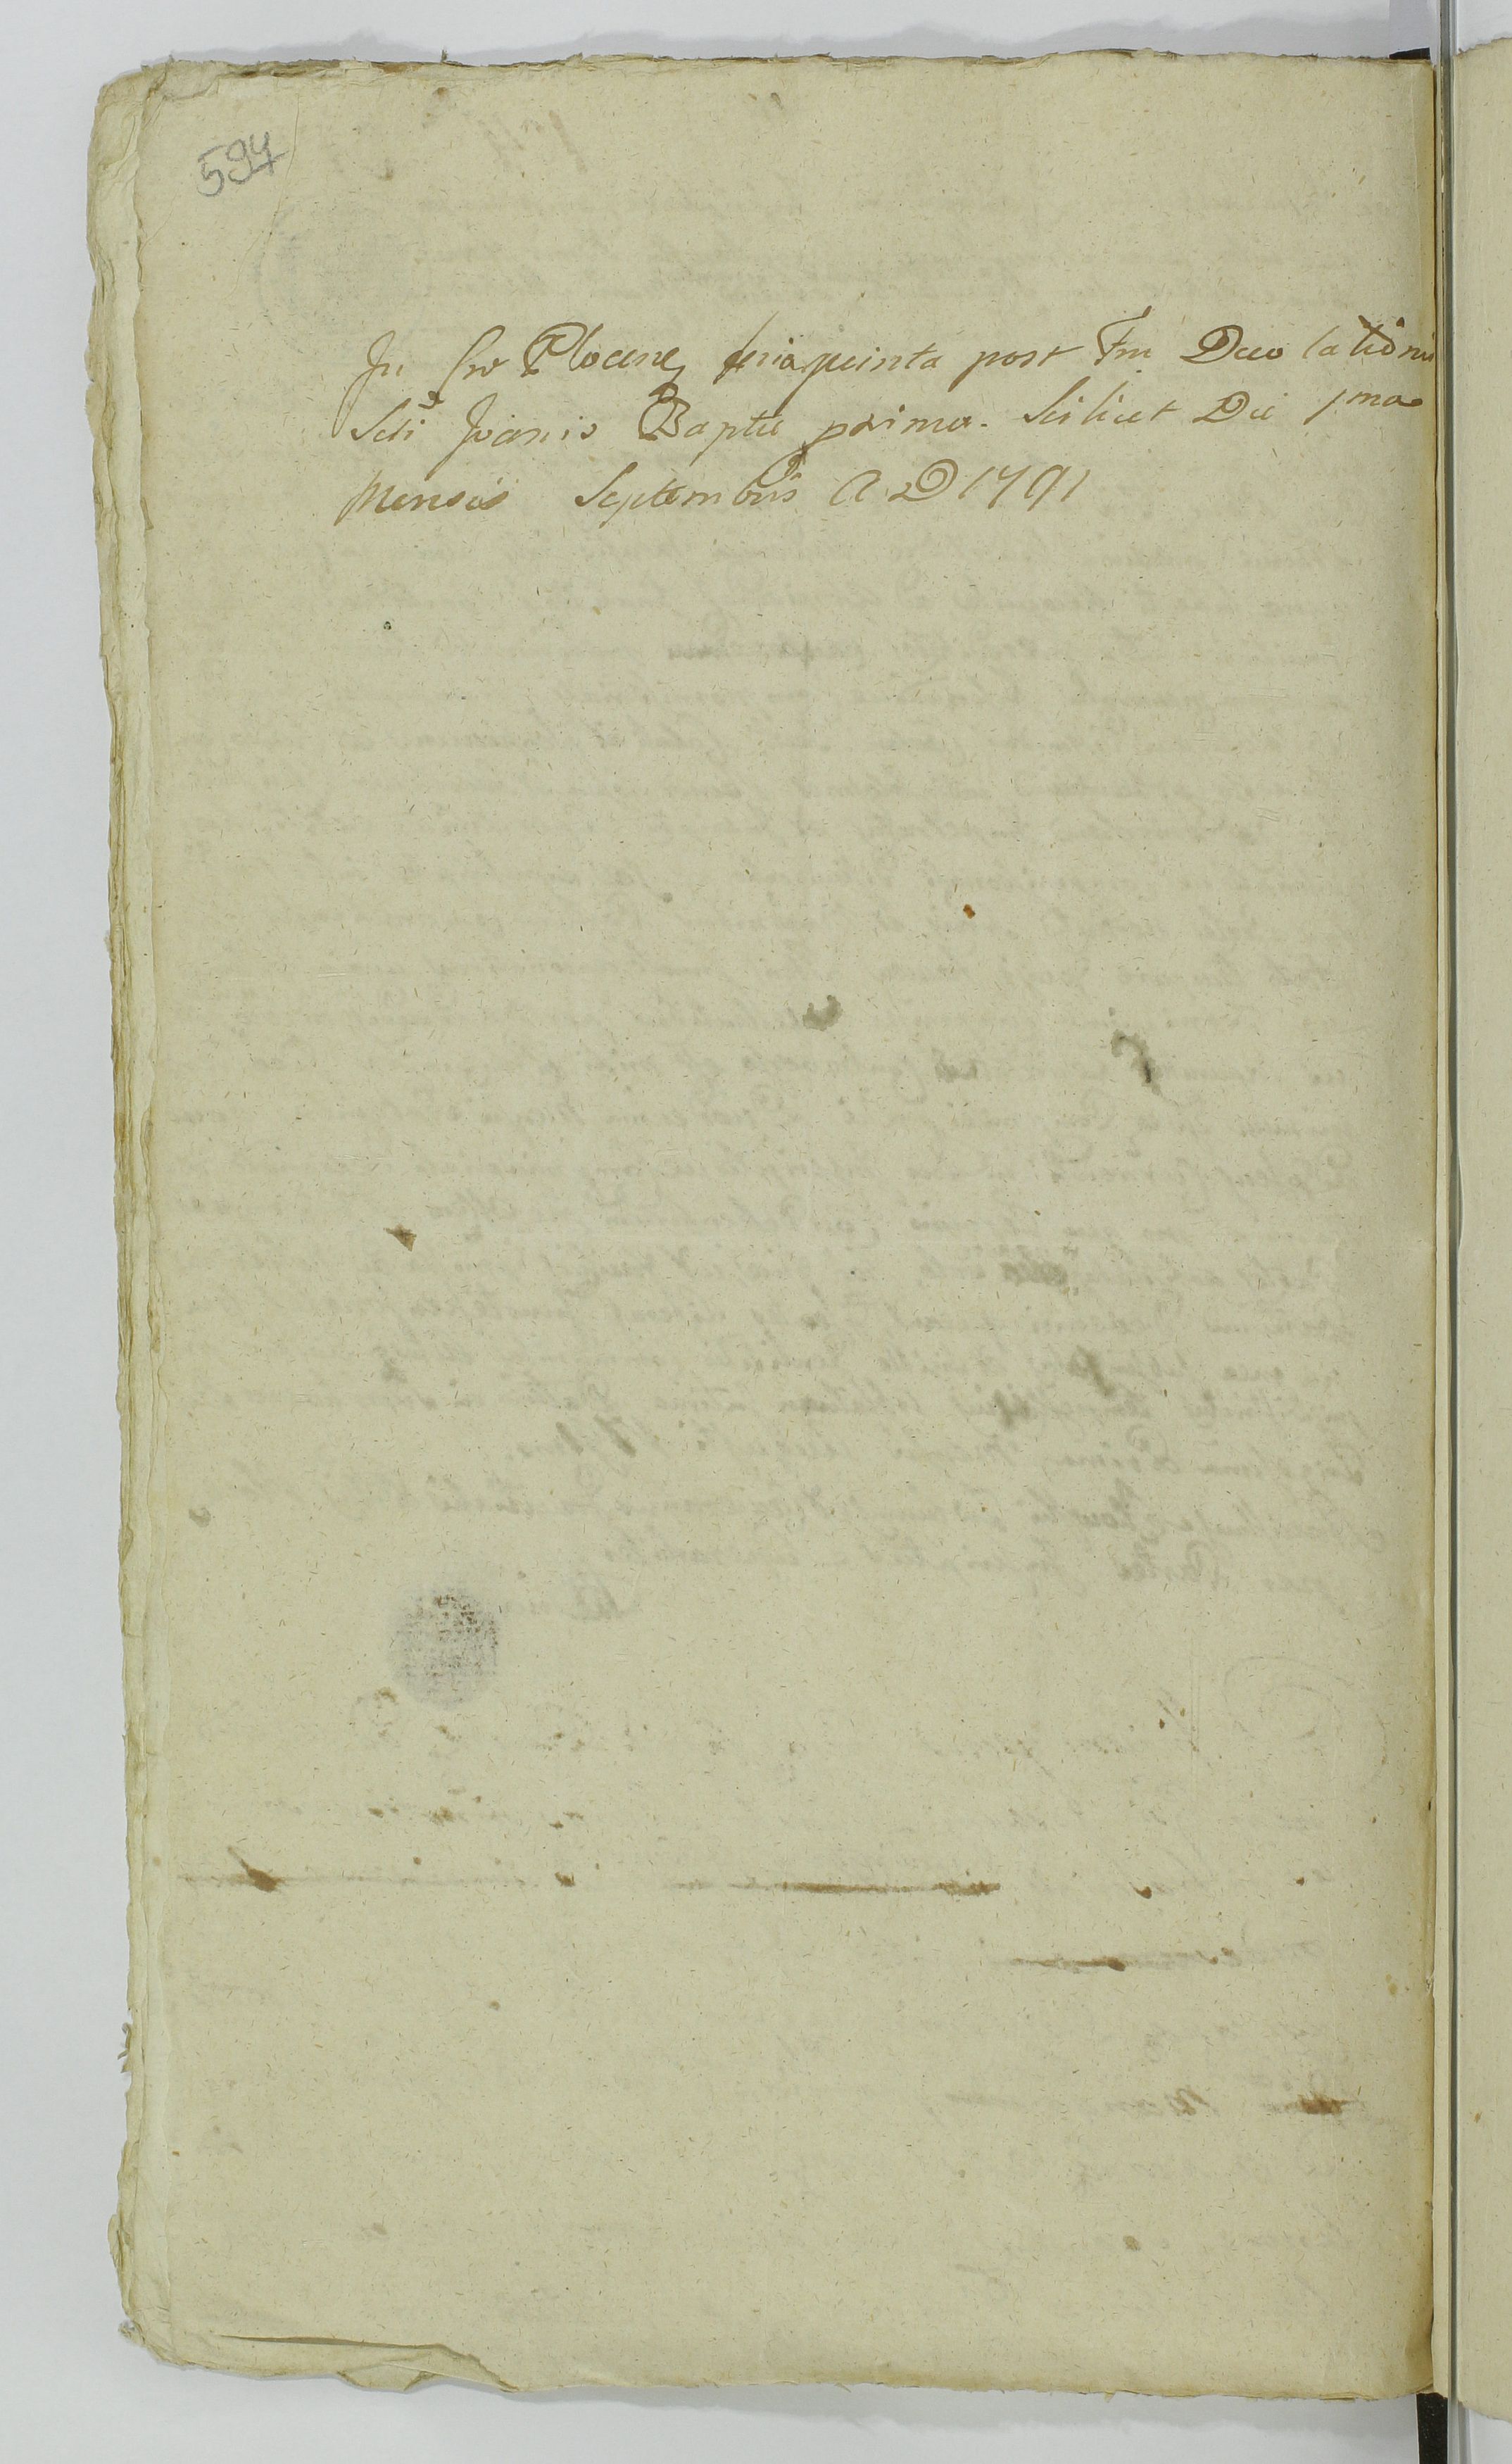 594
In Cro Plocens feria quinta post Fm Decolationis
Scti Joanis Baptae prima. Scilicet Die 1ma
Mensis Septembris A. D 1791